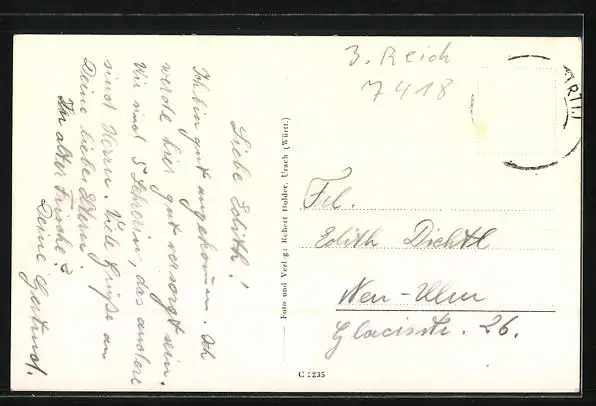 Liebe Edith!
Ich bin gut angekommen. Ich
werde hier gut versorgt sein.
Wir sind 5 Lehrerin, das andere
sind Herren. Viele Grüße an
Deine lieben Eltern!
In alter Frische?
Deine Gertrud.
Foto und Verl.g: Robert Holder, Urach (Württ.)
3. Reich
7418
Frl.
Edith Dichtl
Neu-Ulm
Glacisstr. 26.
C 2235